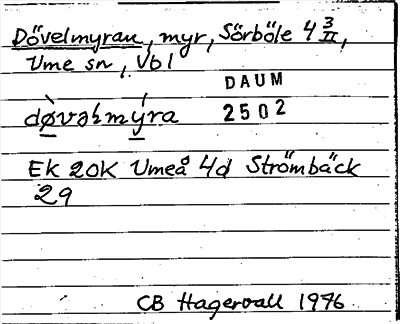 Dövelmyran, myr, Sörböle 4 3/II,
Ume sn, Vbl
DAUM
2502
døvəlmyra
Ek 20K Umeå 4d Strömbäck
29
CB Hagervall 1976